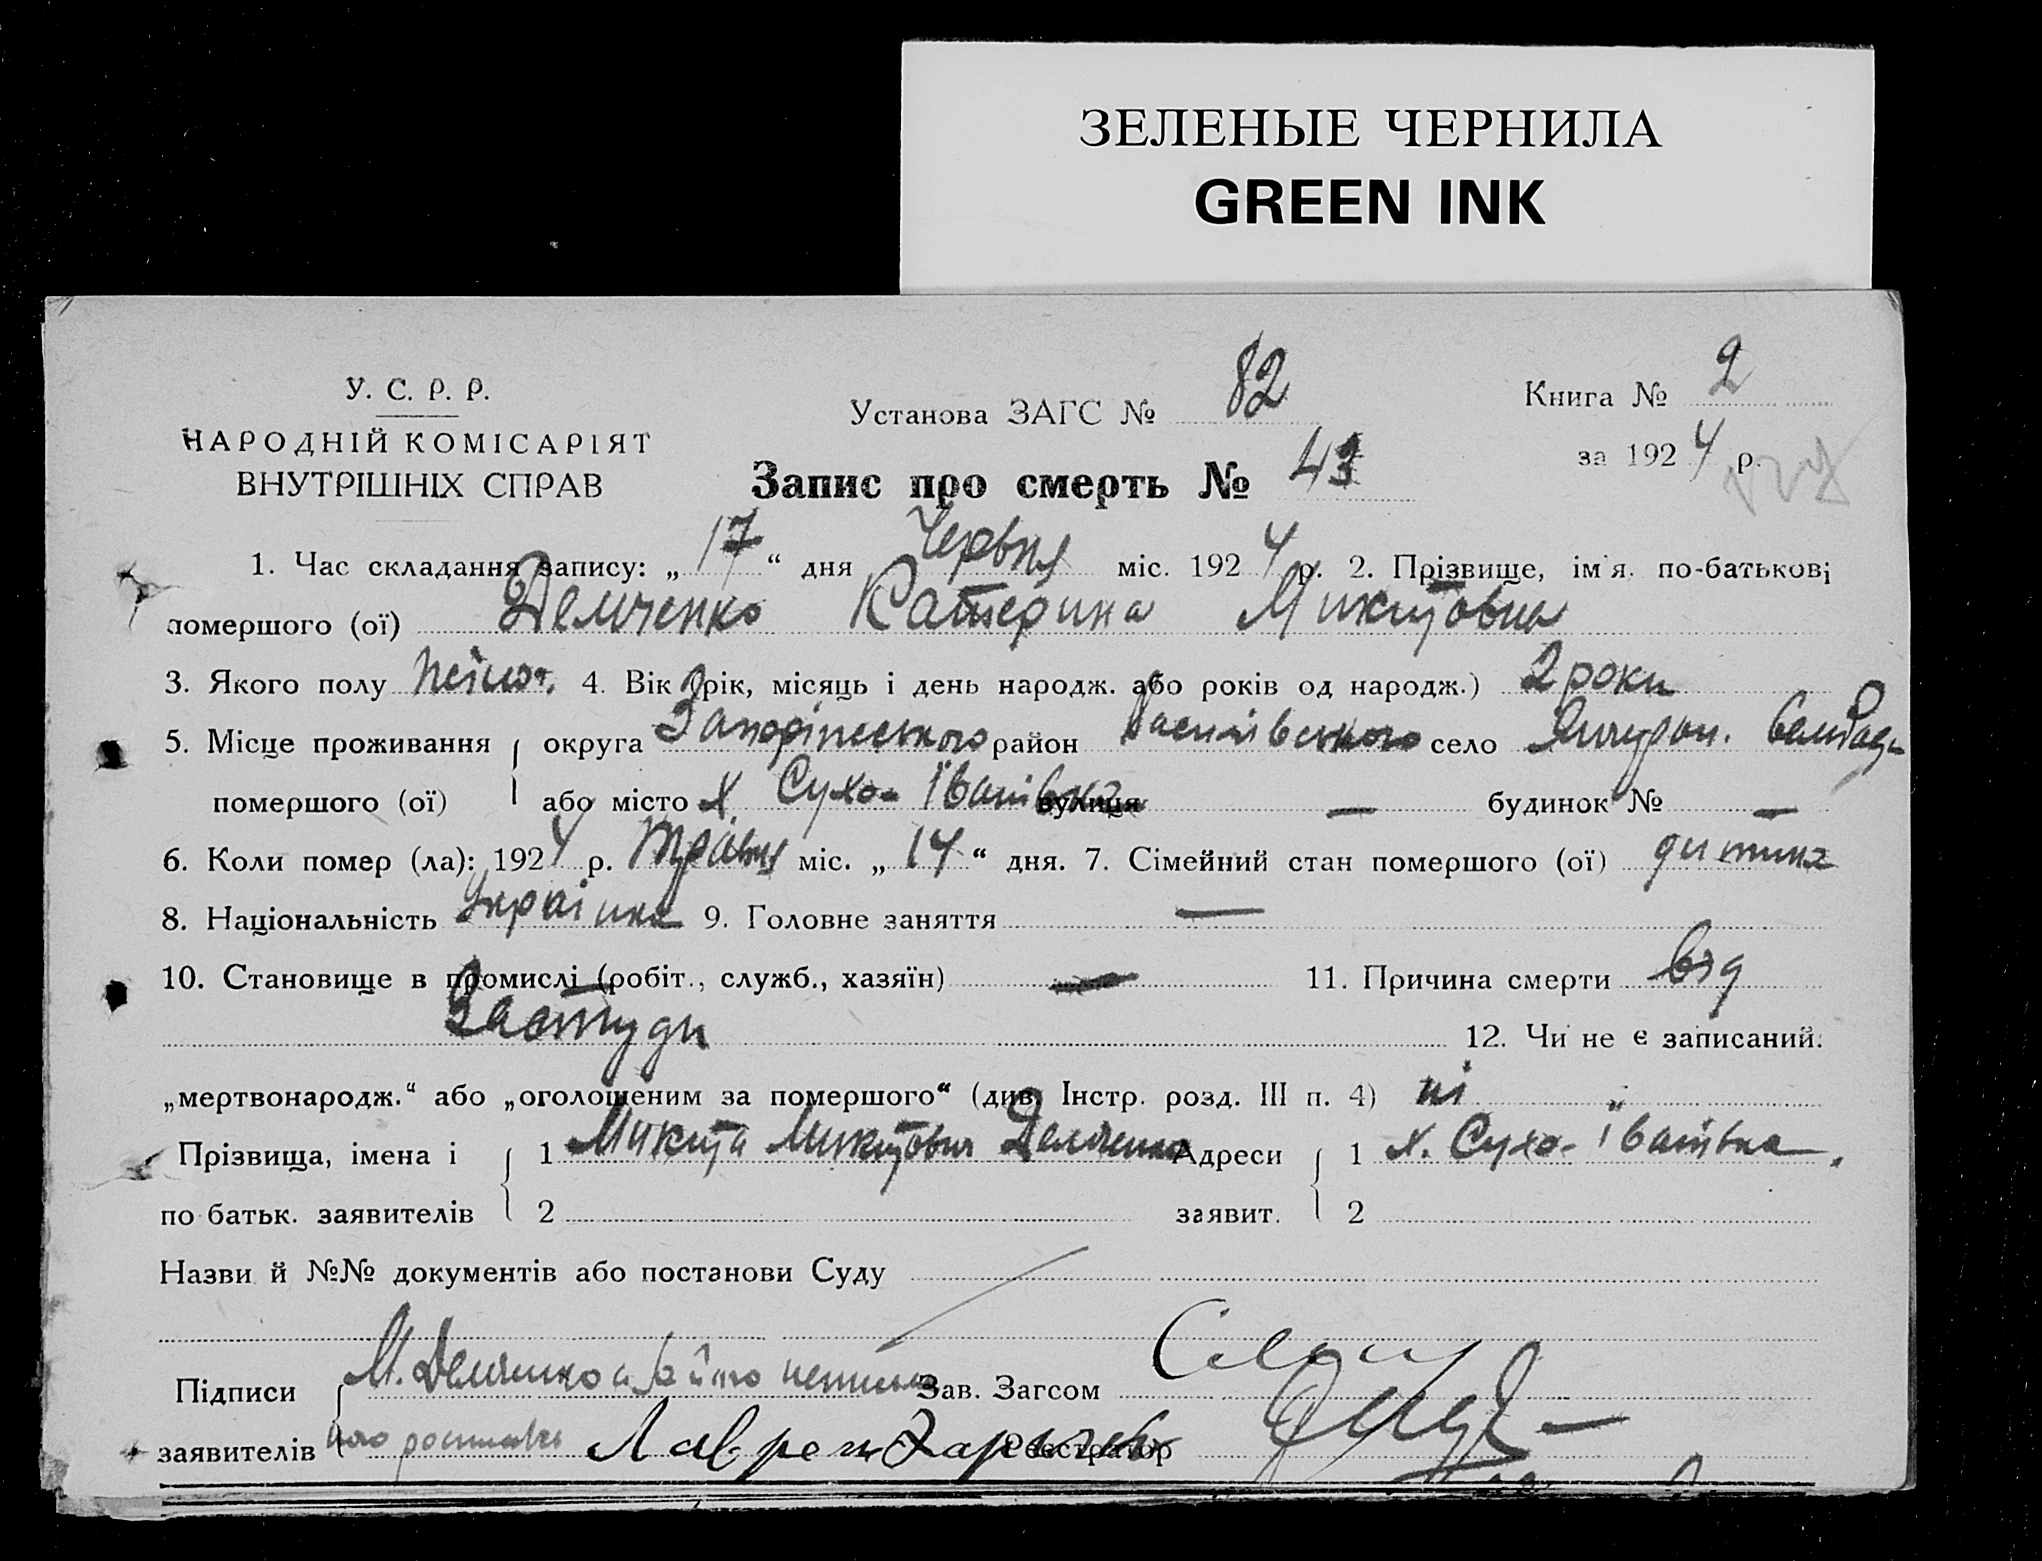 ЗЕЛЕНЫЕ ЧЕРНИЛА
GREEN INK
У. С. Р. Р.
НАРОДНІЙ КОМІСАРІЯТ
ВНУТРІШНІХ СПРАВ
Установа ЗАГС № 82
Книга № 2
за 1924 р.
Запис про смерть № 43
1. Час складання запису: „17“ дня Червня міс. 1924 р. 2. Прізвище, ім'я. по-батькові
помершого (ої) Демченко Катерина Микитовна
3. Якого полу жіноч. 4. Вік (рік, місяць і день народж. або років од народж.) 2 роки
5. Місце проживання округа Запоріжського район Васнлівського село
помершого (ої) або місто х. Сухо-Іванівка вулиця — будинок № —
6. Коли помер (ла): 1924 р. Травня міс. „14“ дня. 7. Сімейний стан помершого (ої) дитина
8. Національність Українка 9. Головне заняття —
10. Становище в промислі (робіт., служб., хазяїн) — 11. Причина смерти від
Застуди 12. Чи не є записаний:
„мертвонародж.“ або „оголошеним за помершого“ (див. Інстр. розд. III п. 4) ні
Прізвища, імена і 1 Микита Микитович Демченко Адреси 1 х. Сухо-Іванівка.
по батьк. заявителів 2 заявит. 2
Назви й №№ документів або постанови Суду
Підписи М. Демченко Зав. Загсом
заявителів Реєстратор